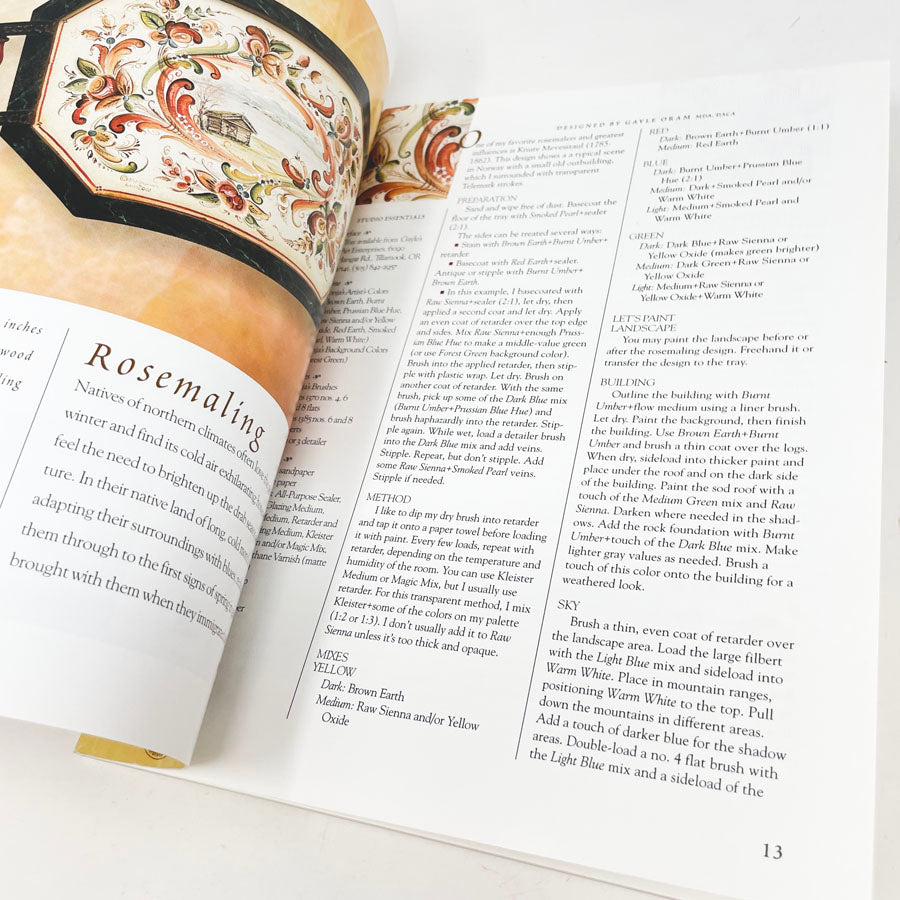 inches
wood
Rosemaling
Natives of northern climates often
winter and find its cold air exhilarating
feel the need to brighten up the drab
ture. In their native land of long, cold
adapting their surroundings with
them through to the first signs of spring
brought with them when they immigrated
STUDIO ESSENTIALS
available from: Gayle's
Enterprises, 6090
Tillamook, OR
Artist's Colors
Brown Earth, Burnt
Umber, Prussian Blue Hue,
Sienna and/or Yellow
Oxide, Red Earth, Smoked
Pearl, Warm
Background Colors
Forest Green)
Brushes
1370 nos. 4, 6
8 flats
1385 nos. 6 and 8
or 3 detailer
sandpaper
paper
All-Purpose Sealer,
Glazing Medium,
Medium, Retarder and
Medium, Kleister
and/or Magic Mix,
Varnish (matte
DESIGNED BY GAYLE ORAM MDA, DACA
One of my favorite rosemalers and greatest
influences is Knute Mevesitaul (1785-
1862). This design shows a typical scene
in Norway with a small old outbuilding,
which I surrounded with transparent
Telemark strokes.
PREPARATION
Sand and wipe free of dust. Basecoat the
floor of the tray with Smoked Pearl+sealer
(2:1).
The sides can be treated several ways:
■ Stain with Brown Earth+Burnt Umber+
retarder.
■ Basecoat with Red Earth+sealer.
Antique or stipple with Burnt Umber+
Brown Earth.
■ In this example, I basecoated with
Raw Sienna+sealer (2:1), let dry, then
applied a second coat and let dry. Apply
an even coat of retarder over the top edge
and sides. Mix Raw Sienna+enough Pruss-
ian Blue Hue to make a middle-value green
(or use Forest Green background color).
Brush into the applied retarder, then stip-
ple with plastic wrap. Let dry. Brush on
another coat of retarder. With the same
brush, pick up some of the Dark Blue mix
(Burnt Umber+Prussian Blue Hue) and
brush haphazardly into the retarder. Stip-
ple again. While wet, load a detailer brush
into the Dark Blue mix and add veins.
Stipple. Repeat, but don't stipple. Add
some Raw Sienna+Smoked Pearl veins.
Stipple if needed.
METHOD
I like to dip my dry brush into retarder
and tap it onto a paper towel before loading
it with paint. Every few loads, repeat with
retarder, depending on the temperature and
humidity of the room. You can use Kleister
Medium or Magic Mix, but I usually use
retarder. For this transparent method, I mix
Kleister+some of the colors on my palette
(1:2 or 1:3). I don't usually add it to Raw
Sienna unless it's too thick and opaque.
MIXES
YELLOW
Dark: Brown Earth
Medium: Raw Sienna and/or Yellow
Oxide
RED
Dark: Brown Earth+Burnt Umber (1:1)
Medium: Red Earth
BLUE
Dark: Burnt Umber+Prussian Blue
Hue (2:1)
Medium: Dark+Smoked Pearl and/or
Warm White
Light: Medium+Smoked Pearl and
Warm White
GREEN
Dark: Dark Blue+Raw Sienna or
Yellow Oxide (makes green brighter)
Medium: Dark Green+Raw Sienna or
Yellow Oxide
Light: Medium+Raw Sienna or
Yellow Oxide+Warm White
LET'S PAINT
LANDSCAPE
You may paint the landscape before or
after the rosemaling design. Freehand it or
transfer the design to the tray.
BUILDING
Outline the building with Burnt
Umber+flow medium using a liner brush.
Let dry. Paint the background, then finish
the building. Use Brown Earth+Burnt
Umber and brush a thin coat over the logs.
When dry, sideload into thicker paint and
place under the roof and on the dark side
of the building. Paint the sod roof with a
touch of the Medium Green mix and Raw
Sienna. Darken where needed in the shad-
ows. Add the rock foundation with Burnt
Umber+touch of the Dark Blue mix. Make
lighter gray values as needed. Brush a
touch of this color onto the building for a
weathered look.
SKY
Brush a thin, even coat of retarder over
the landscape area. Load the large filbert
with the Light Blue mix and sideload into
Warm White. Place in mountain ranges,
positioning Warm White to the top. Pull
down the mountains in different areas.
Add a touch of darker blue for the shadow
areas. Double-load a no. 4 flat brush with
the Light Blue mix and a sideload of the
13